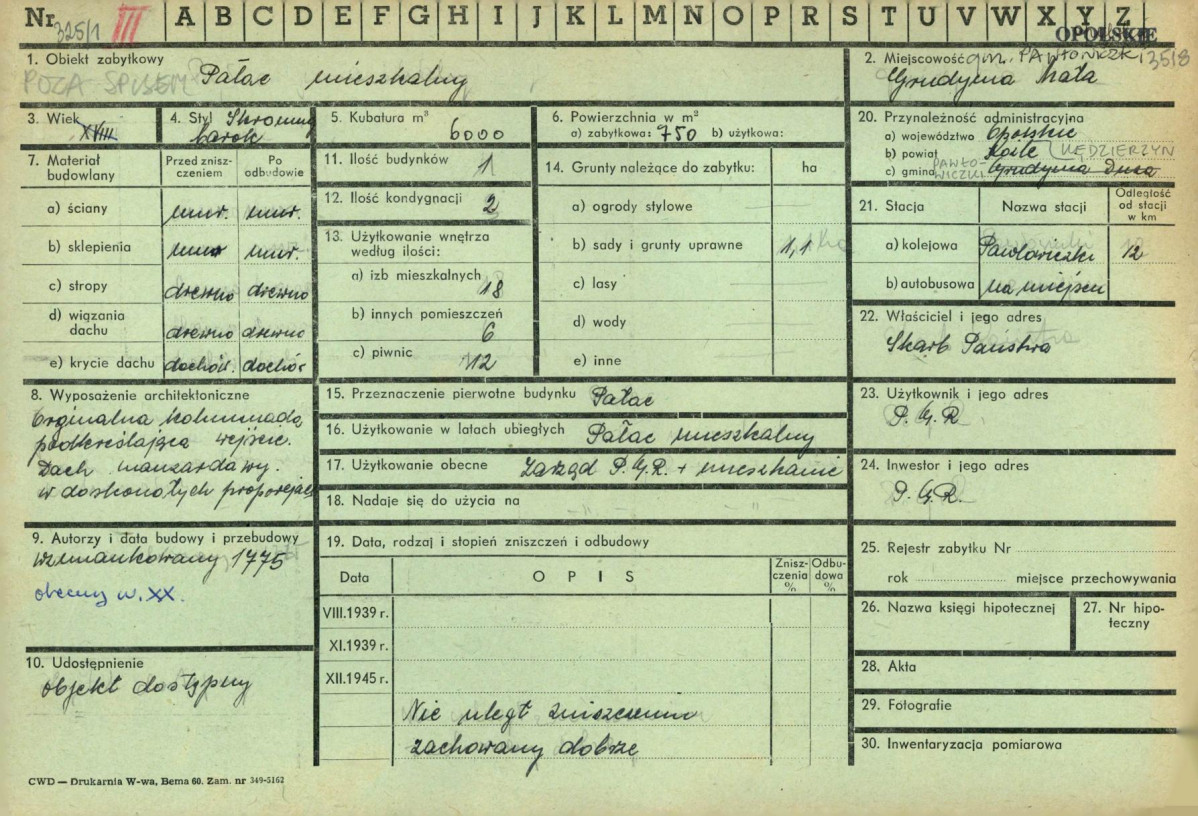 Nr 325/1 III A B C D E F G H I J K L M N O P R S T U V W X Y Z
OPOLSKIE
1. Obiekt zabytkowy
POZA SPISEM Pałac mieszkalny
2. Miejscowość gm. PAWŁOWICZKI 3518
Grudynia Mała
3. Wiek
XVIII
4. Styl Skromny
barok
5. Kubatura m³
6000
6. Powierzchnia w m²
a) zabytkowa: 750 b) użytkowa:
20. Przynależność administracyjna
a) województwo Opolskie
b) powiat Koźle KĘDZIERZYN
c) gmina PAWŁO-WICZKI Grudynia Duża
7. Materiał budowlany
Przed zniszczeniem
Po odbudowie
a) ściany mur. mur.
b) sklepienia mur. mur.
c) stropy drewno drewno
d) wiązania dachu drewno drewno
e) krycie dachu dachów. dachów
11. Ilość budynków 1
12. Ilość kondygnacji 2
13. Użytkowanie wnętrza według ilości:
a) izb mieszkalnych 18
b) innych pomieszczeń
6
c) piwnic 12
14. Grunty należące do zabytku: ha
a) ogrody stylowe
b) sady i grunty uprawne 1,1 ha
c) lasy
d) wody
e) inne
21. Stacja Nazwa stacji Odległość od stacji w km
a) kolejowa Pawłowiczki 12
b) autobusowa na miejscu
22. Właściciel i jego adres
Skarb Państwa
8. Wyposażenie architektoniczne
Orginalna kolumnada
podkreślająca wejście.
Dach mansardowy.
w doskonałych proporcjach
15. Przeznaczenie pierwotne budynku Pałac
16. Użytkowanie w latach ubiegłych Pałac mieszkalny
17. Użytkowanie obecne Zarząd P.G.R. + mieszkanie
18. Nadaje się do użycia na - „ -
23. Użytkownik i jego adres
P.G.R
24. Inwestor i jego adres
P.G.R.
9. Autorzy i data budowy i przebudowy
wzmiankowany 1775
obecny w. XX.
10. Udostępnienie
objekt dostępny
19. Data, rodzaj i stopień zniszczeń i odbudowy
Data OPIS Zniszczenia % Odbudowa %
VIII.1939 r.
XI.1939 r.
XII.1945 r.
Nie uległ zniszczeniu
zachowany dobrze
25. Rejestr zabytku Nr
rok miejsce przechowywania
26. Nazwa księgi hipotecznej
27. Nr hipoteczny
28. Akta
29. Fotografie
30. Inwentaryzacja pomiarowa
CWD — Drukarnia W-wa, Bema 60. Zam. nr 349-5162